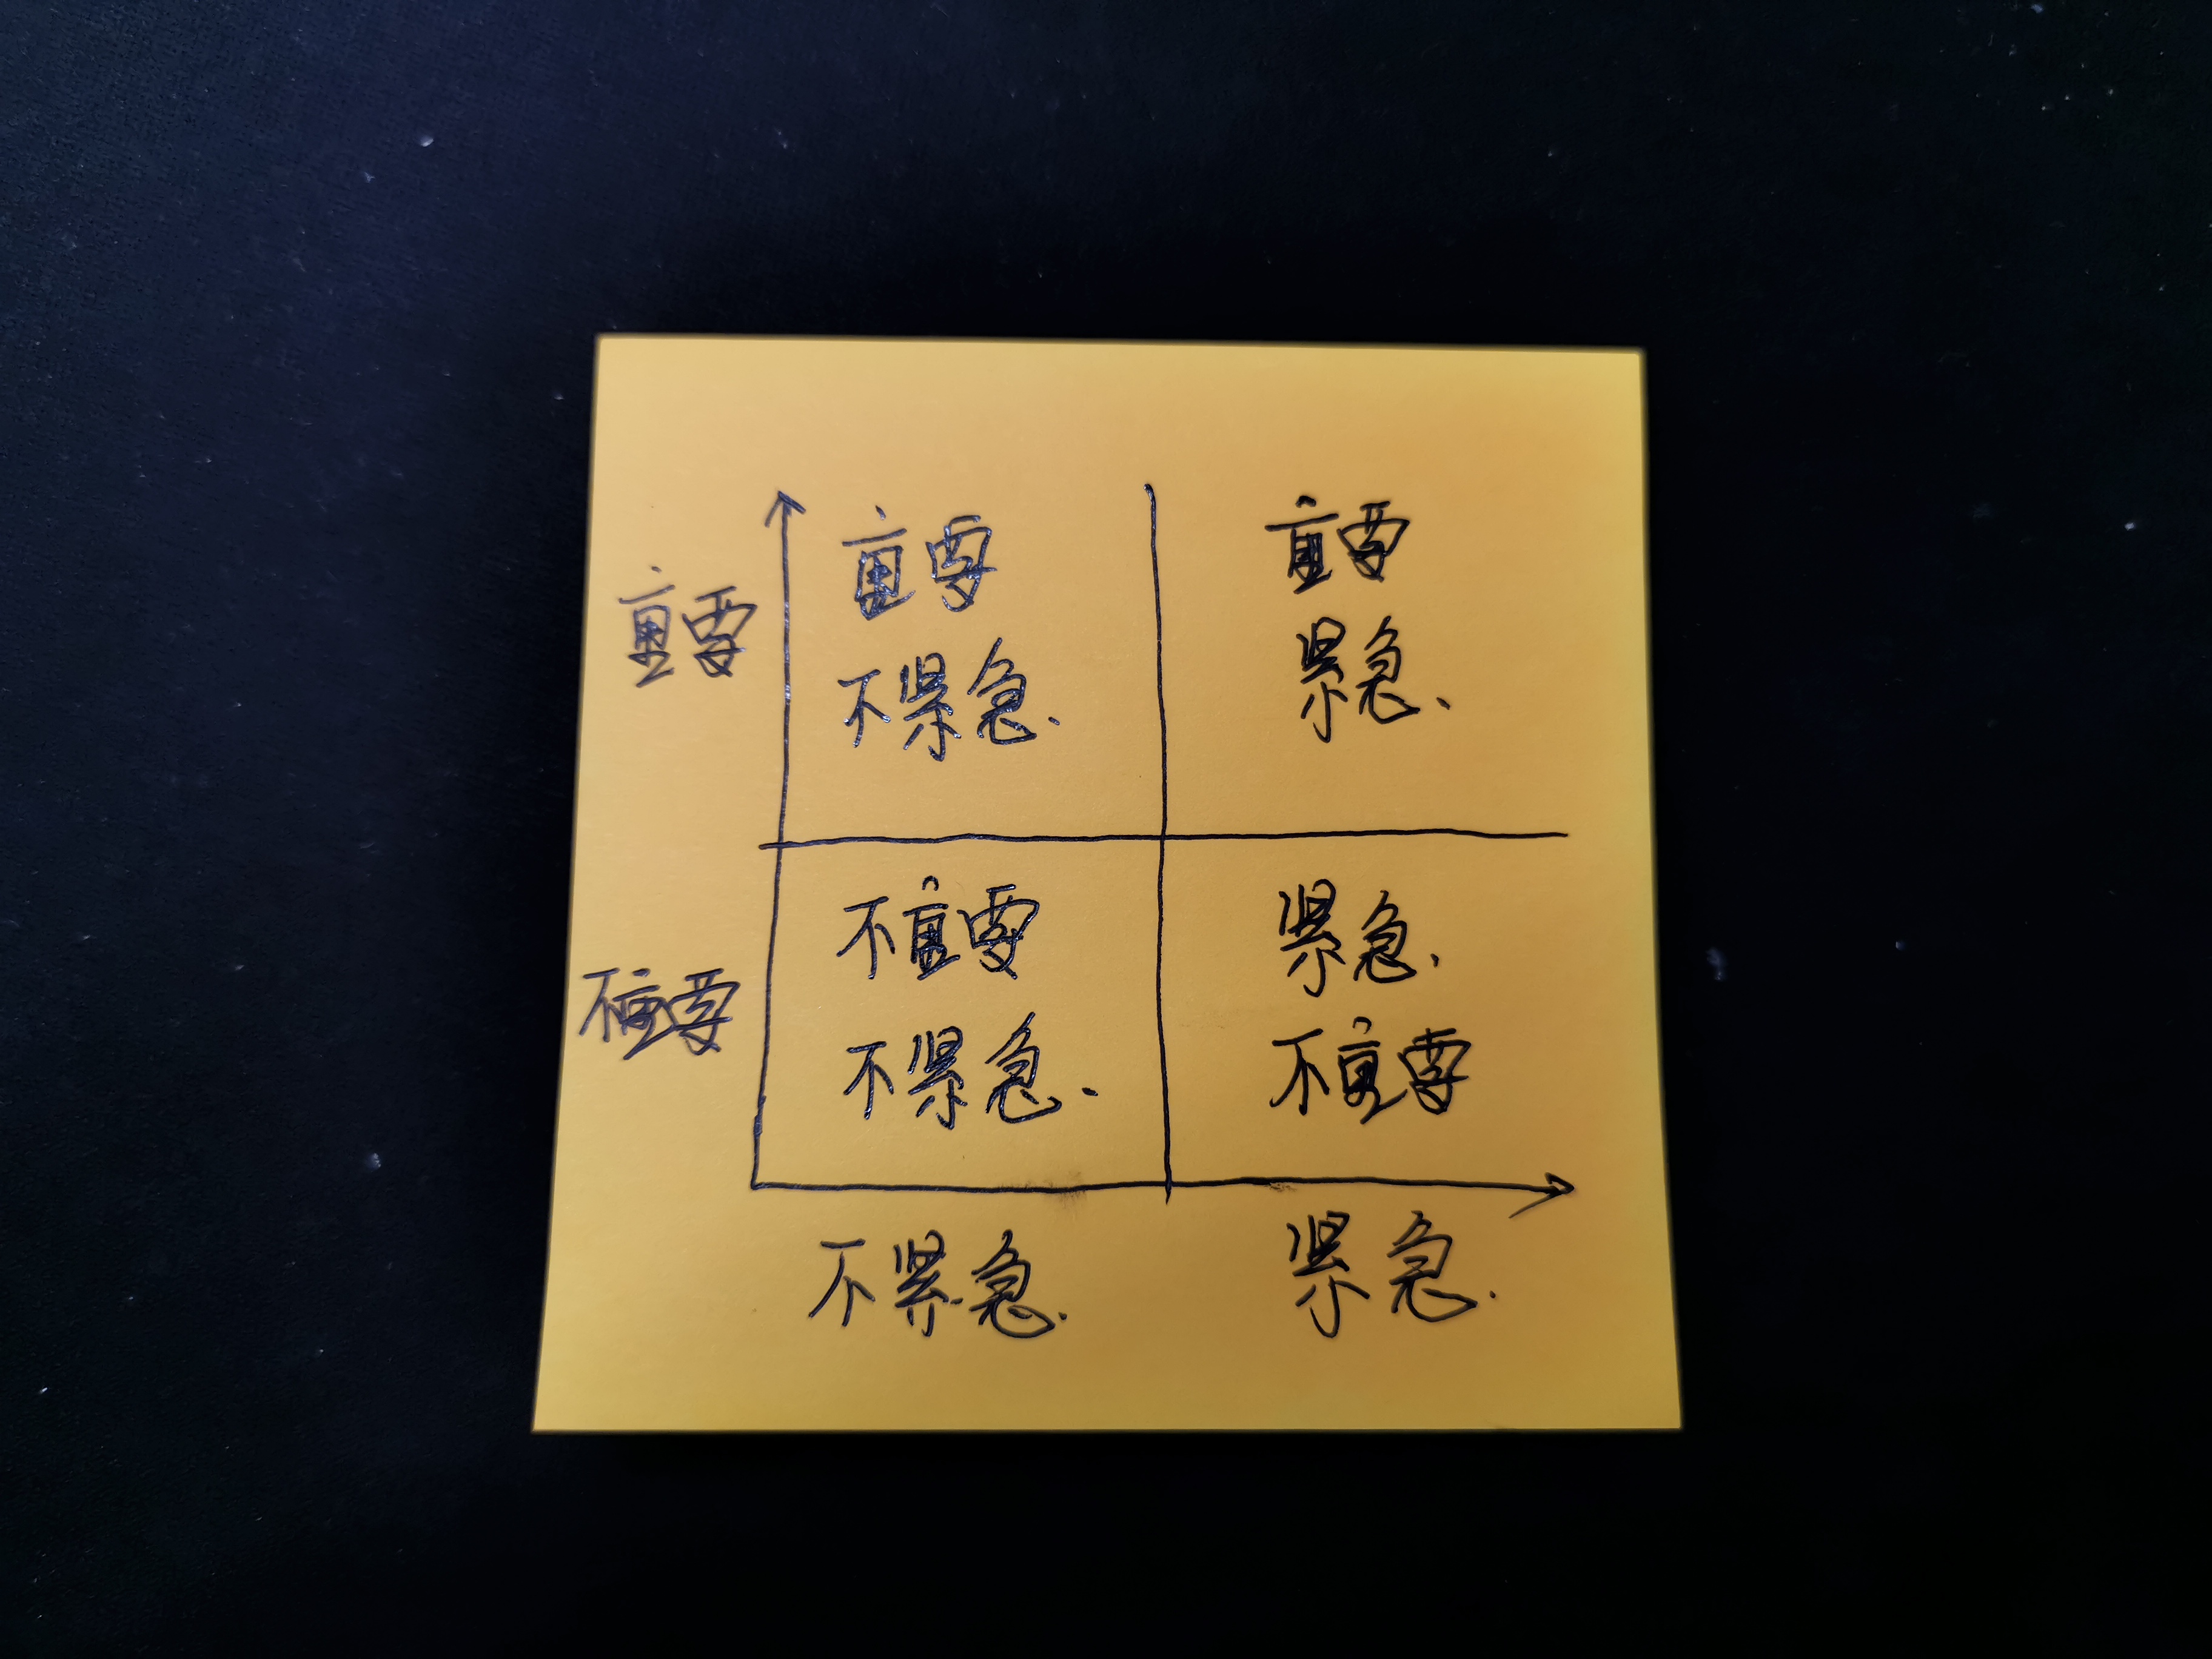 重要
重要
不紧急
重要
紧急
不重要
不重要
不紧急
紧急
不重要
不紧急
紧急